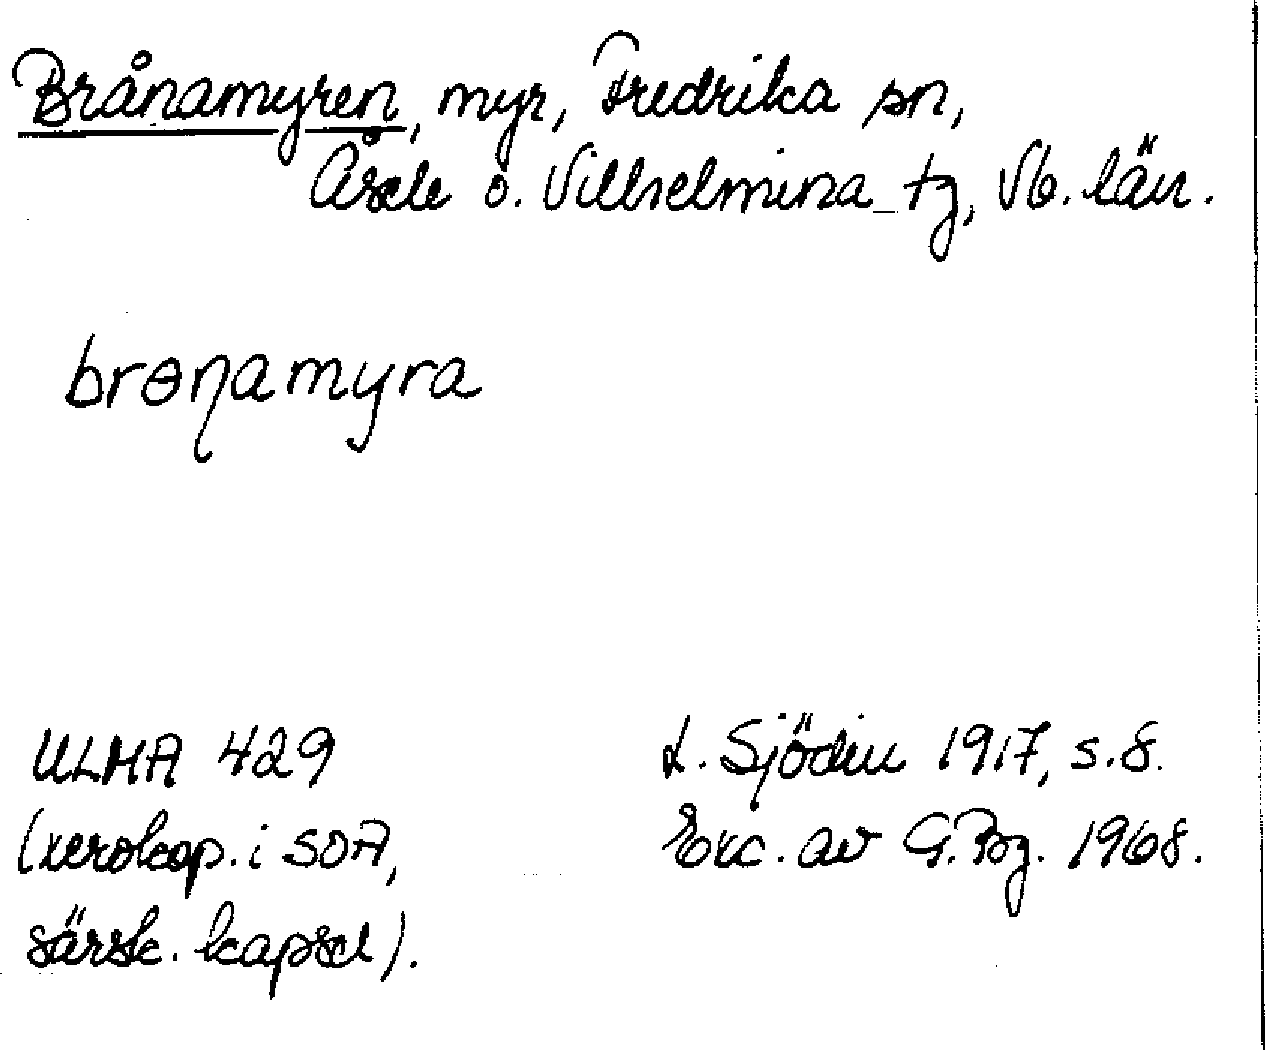 Brånamyren, myr, Fredrika sn,
Åsele o. Vilhelmina tg, Vb. län.
brɵnamyra
ULMA 429
(xerokop. i SOA,
särsk. kapsel).
L. Sjödin 1917, s.8.
Exc. av G.Bg. 1968.